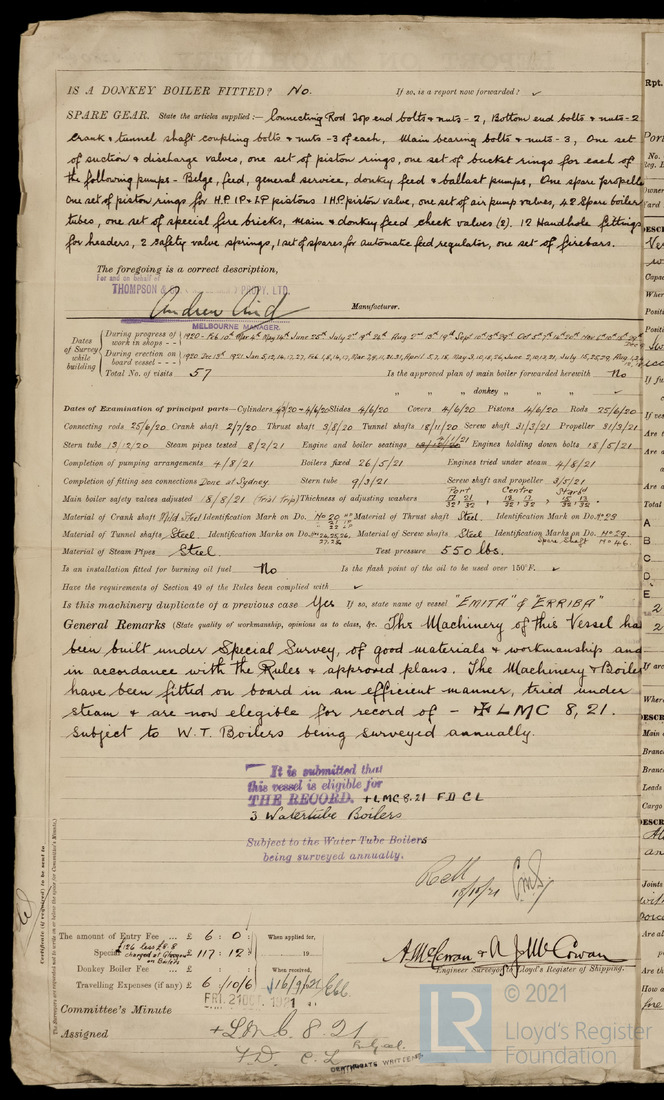 IS A DONKEY BOILER FITTED? No. If so, is a report now forwarded? ✓
SPARE GEAR. State the articles supplied:— Connecting Rod Top end bolts & nuts - 2, Bottom end bolts & nuts - 2
Crank & tunnel shaft coupling bolts & nuts - 3 of each, Main bearing bolts & nuts - 3, One set
of suction & discharge valves, one set of piston rings, one set of bucket rings for each of
the following pumps - Bilge, feed, general service, donkey feed & ballast pumps, One spare propeller
One set of piston rings for H.P. I.P & L.P pistons 1 H.P. piston valve, one set of air pump valves, 42 Spare boiler
tubes, one set of special fire bricks, Main & donkey feed check valves (2). 12 Handhole fittings
for headers, 2 Safety valve springs, 1 set of spares for automatic feed regulator, one set of firebars.
The foregoing is a correct description,
For and on behalf of
THOMPSON & PROPY. LTD.
Manufacturer.
MELBOURNE MANAGER.
Dates of Survey while building
During progress of work in shops - - 1920 - Feb 10th Mar 4th May 14th June 25th July 2nd 9th 22nd Aug 2nd 13th 19th Sept 10th
During erection on board vessel - - - 1920 Dec 13th 1921 Jan 5, 12, 14, 17, 27, Feb 1, 8, 14, 17, Mar 2, 9, 11, 20, 21, April 5, 7, 15 May 3, 10, 18, 26, June 2, 10, 13, 21, July 15, 25, 29, Aug
Total No. of visits 57 Is the approved plan of main boiler forwarded herewith No
" " " donkey " " ✓
Dates of Examination of principal parts—Cylinders 4/6/20 Slides 4/6/20 Covers 4/6/20 Pistons 4/6/20 Rods 25/6/20
Connecting rods 25/6/20 Crank shaft 2/7/20 Thrust shaft 3/8/20 Tunnel shafts 18/11/20 Screw shaft 31/3/21 Propeller 31/3/21
Stern tube 13/12/20 Steam pipes tested 8/2/21 Engine and boiler seatings 4/1/21 Engines holding down bolts 18/5/21
Completion of pumping arrangements 4/8/21 Boilers fixed 26/5/21 Engines tried under steam 4/8/21
Completion of fitting sea connections Done at Sydney Stern tube 9/3/21 Screw shaft and propeller 3/5/21
Main boiler safety valves adjusted 18/8/21 (Trial Trip) Thickness of adjusting washers Port 17/32, 21/32, Centre 18/32, 17/32, Starb'd 15/32, 13/32.
Material of Crank shaft Mild Steel Identification Mark on Do. No 20 Material of Thrust shaft Steel Identification Mark on Do. No 23
Material of Tunnel shafts Steel Identification Marks on Do. No 24, 25, 26, 27, 28 Material of Screw shafts Steel Identification Marks on Do. No 29
Spare Shaft No 46.
Material of Steam Pipes Steel. Test pressure 550 lbs.
Is an installation fitted for burning oil fuel No Is the flash point of the oil to be used over 150°F. ✓
Have the requirements of Section 49 of the Rules been complied with ✓
Is this machinery duplicate of a previous case Yes If so, state name of vessel "EMITA" & "ERRIBA"
General Remarks (State quality of workmanship, opinions as to class, &c. The Machinery of this Vessel has
been built under Special Survey, of good materials & workmanship and
in accordance with the Rules & approved plans. The Machinery & Boilers
have been fitted on board in an efficient manner, tried under
steam & are now elegible for record of - ✠ LMC 8, 21.
Subject to W.T. Boilers being surveyed annually.
It is submitted that
this vessel is eligible for
THE RECORD. + LMC 8.21 F D C L
3 Watertube Boilers
Subject to the Water Tube Boilers
being surveyed annually.
18/10/21
The amount of Entry Fee ... £ 6 : 0 : When applied for,
£126 less £8.8 charged at Glasgow on Boilers
Special £ 117 : 12 : 19
Donkey Boiler Fee ... £ : : When received,
Travelling Expenses (if any) £ 6 : 10/6 16/9/21
A. McCowan & A. J. McCowan
Engine Surveyor to Lloyd's Register of Shipping.
FRI. 21 OCT. 1921
Committee's Minute
Assigned + LMC 8.21
F.D. C.L
CERTIFICATE WRITTEN
Certificate (if required) to be sent to
The Surveyors are requested not to write on or below the space for Committee's Minute.
© 2021
LR
Lloyd's Register
Foundation
Rpt.